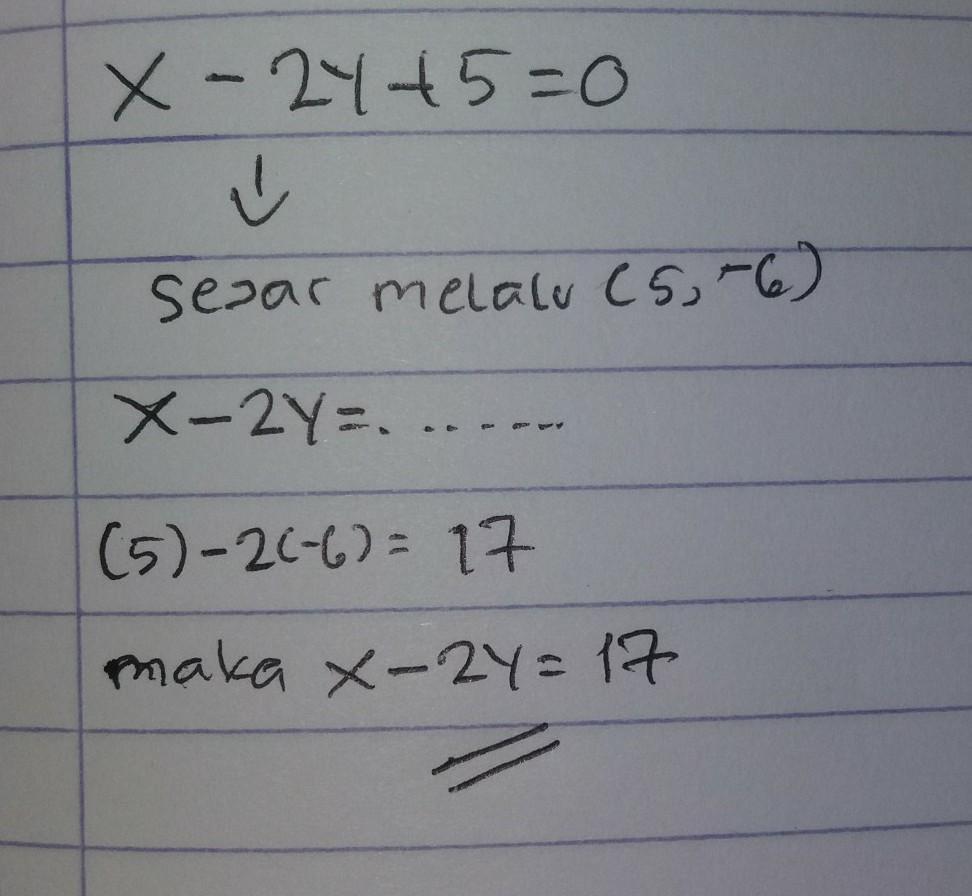 x - 2y + 5 = 0
↓
sejar melalu (5, -6)
x - 2y = . .......
(5) - 2(-6) = 17
maka x - 2y = 17